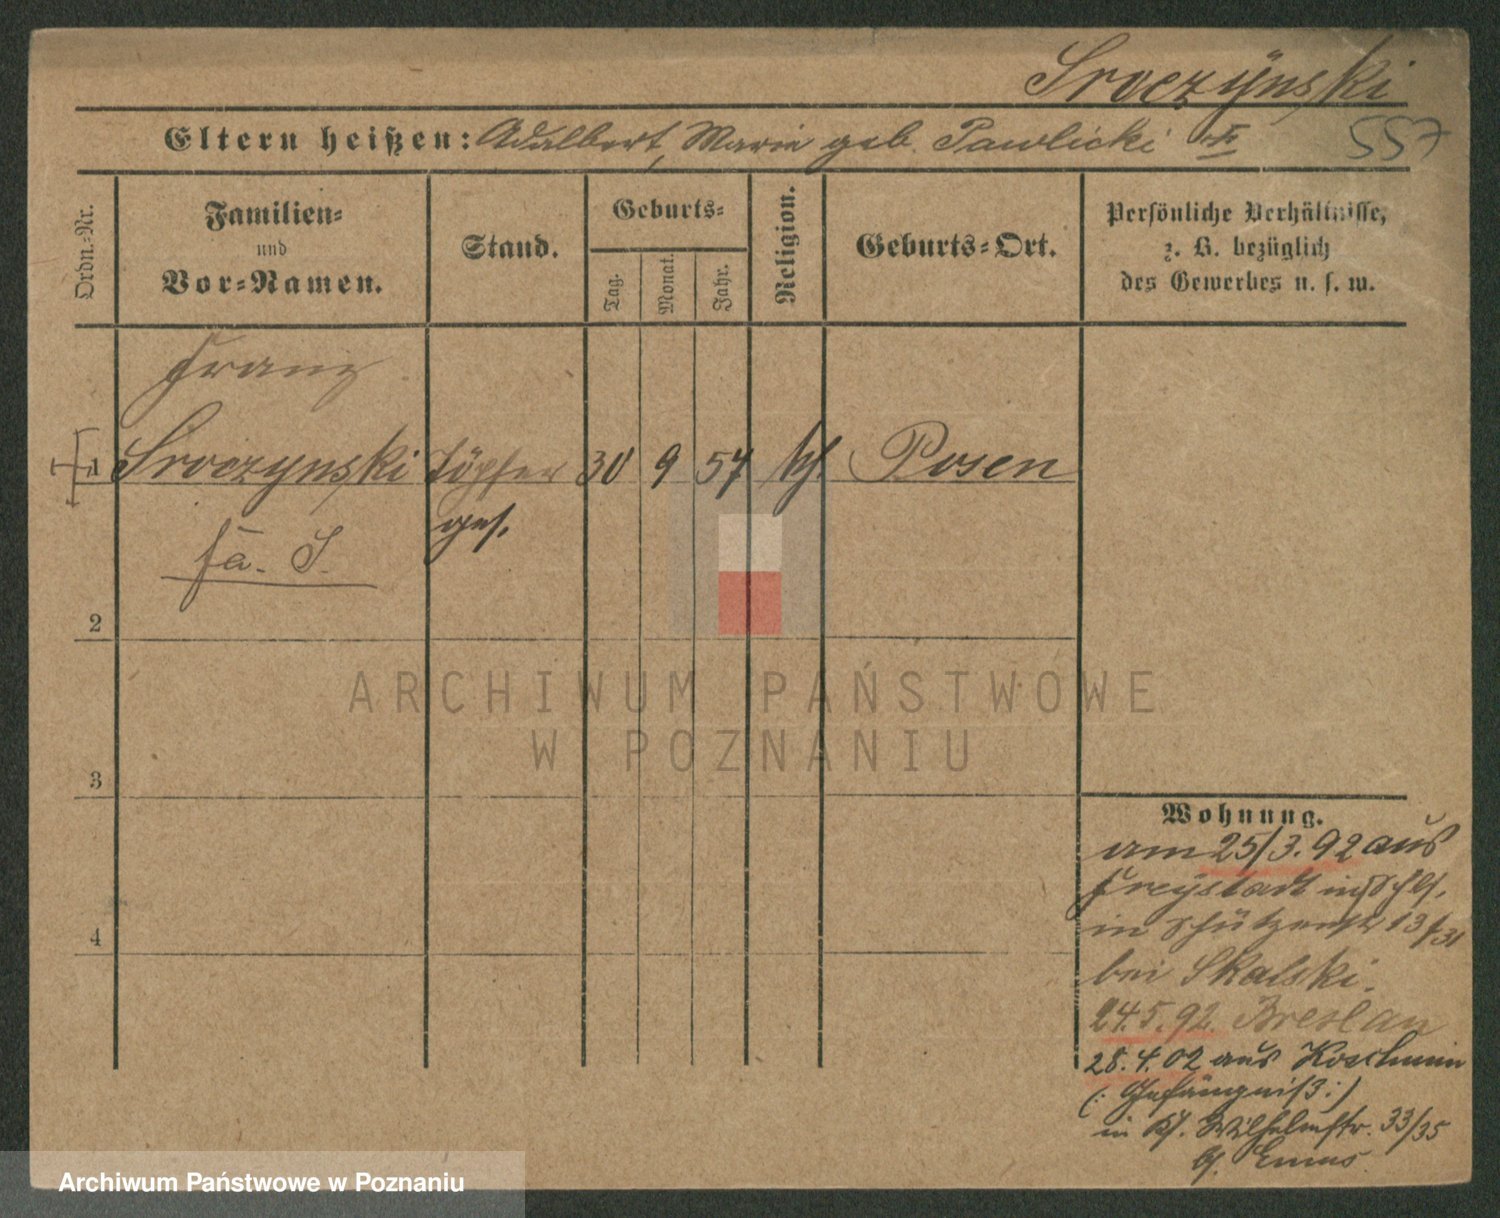 Sroczÿnski
Eltern heißen: Adalbert, Marie geb. Pawlicki
557
Ordn.-Nr.
Familien-
und
Vor-Namen.
Stand.
Geburts-
Tag.
Monat.
Jahr.
Religion.
Geburts-Ort.
Persönliche Verhältnisse,
z. B. bezüglich
des Gewerbes u. s. w.
Franz
1 Sroczynski Töpfer 30 9 57 kth. Posen
ges.
fa. S.
2
3
4
ARCHIWUM PAŃSTWOWE
W POZNANIU
Wohnung.
am 25/3. 92 aus
Freystadt in Schles.
in Schützenstr 13/31
bei Skalski.
24.5.92. Breslau
28.4.02 aus Koschmin
(: Gefängniß :)
in Kl. Wilhelmstr. 33/35
Archiwum Państwowe w Poznaniu